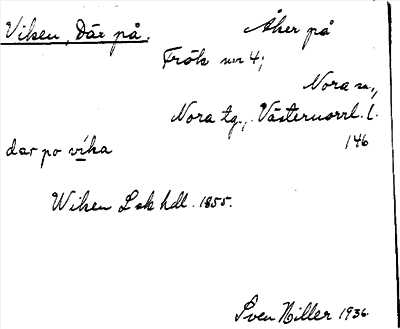 Viken, Där på.
Åker på
Frök nr 4;
Nora sn.,
Nora tg., Västernorrl. l.
146
dar po vika
Wiken Lsk hdl. 1855.
Sven Hiller 1936